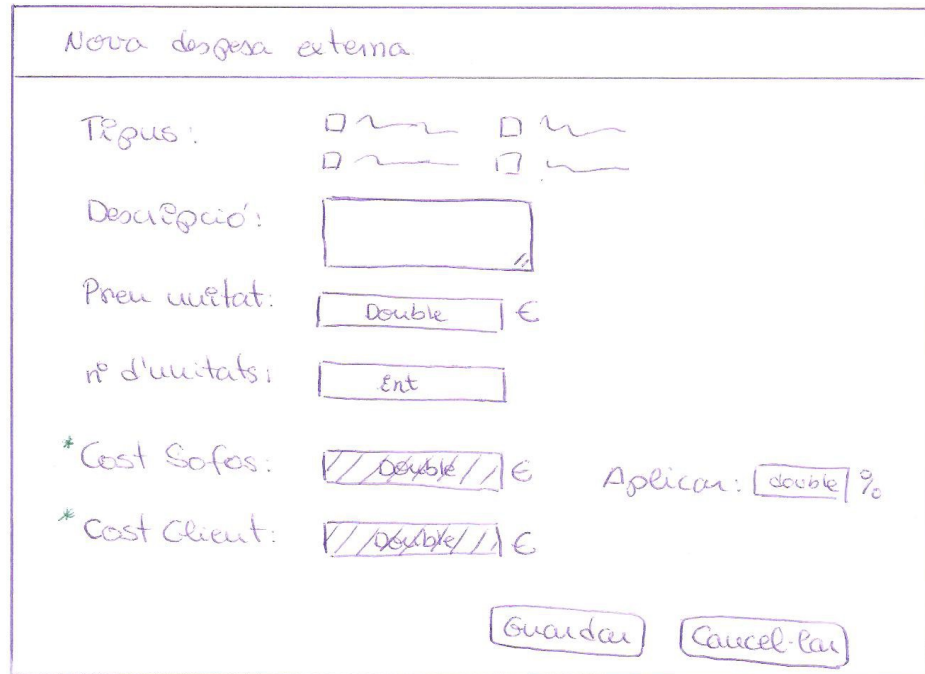 Nova despesa externa
Tipus:
Descripció:
Preu unitat: Double €
nº d'unitats: Ent
*Cost Sofos: Double € Aplicar: double %
*Cost Client: Double €
Guardar Cancel·lar